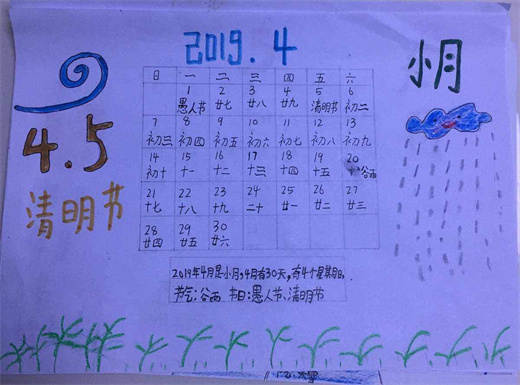 2019.4
小月
4.5
清明节
日 一 二 三 四 五 六
1 2 3 4 5 6
愚人节 廿七 廿八 廿九 清明节 初二
7 8 9 10 11 12 13
初三 初四 初五 初六 初七 初八 初九
14 15 16 17 18 19 20
初十 十一 十二 十三 十四 十五 谷雨
21 22 23 24 25 26 27
十七 十八 十九 二十 廿一 廿二 廿三
28 29 30
廿四 廿五 廿六
2019年4月是小月,4月有30天,有4个星期日。
节气:谷雨 节日:愚人节、清明节